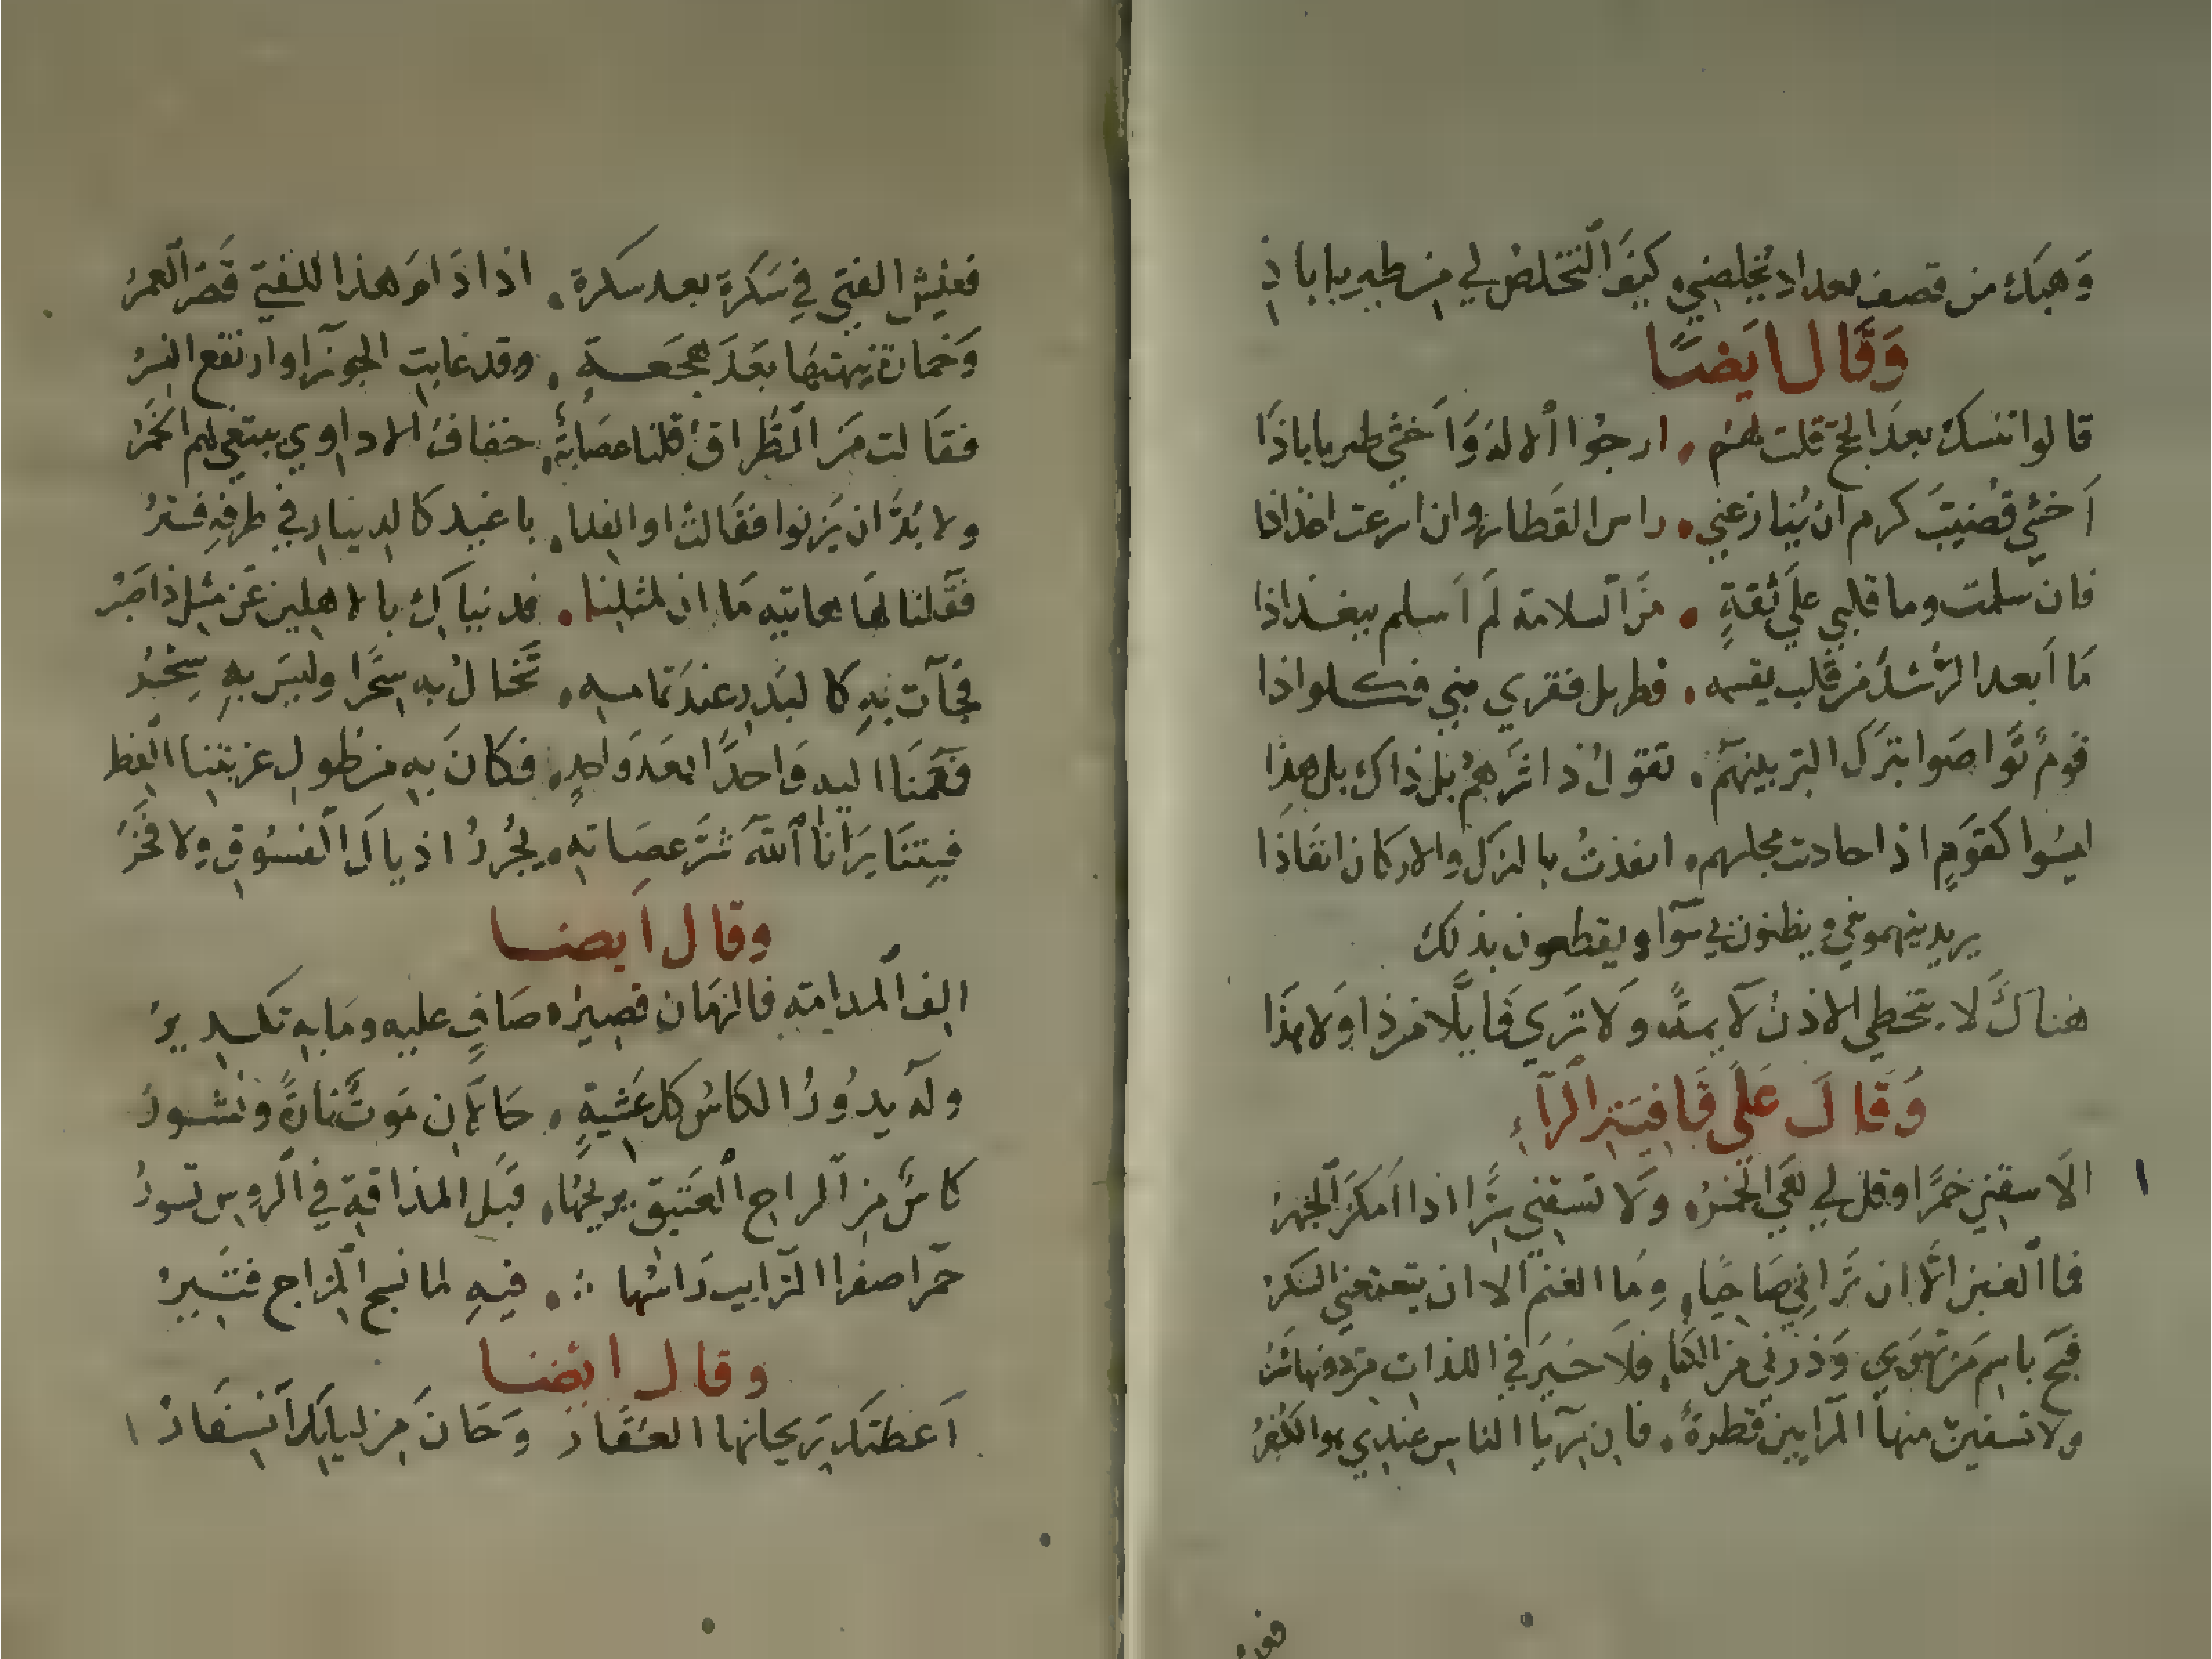 وَهبك من قصف بغداد تخلصني كيفَ التخلص لي من طيرباباذ
وَقَال ايَضًا
قالوا تنسك بعدَ الحج قلت لهُم . ارجُوا الاله وَاخشي طيرباباذَا
اَخشي قضيبَ كرم ان يُنازعني . راس القطار وان اسرعت اغذاذا
فان سلمت وما قلبي علي ثقةٍ . منَ السلامة لَم اَسلم ببغداذا
مَا اَبعد الرُشدَ من قلب يقسمه . قطربل فقري بني فكلواذا
قومٌ توَاصَوا بترك البر بينهم . تقول ذا شرهُم بل ذاك بل هذا
ليسُوا كقومٍ اذا حادت مجلسهم . انفذتُ بالنزل والاركان انفاذَا
يريد ينهموني ويظنون بي سوآ ويقطعون بذلك
هناك لا يتخطي الاذن لايمة ولا تَري قايلا من ذا ولا هذَا
وَقَالَ عَلَي قافيَة الرآءِ
الا سقني خمرًا وقل لي هي الخمرُ . ولا تسقني سرًا اذا امكنَ الجهرُ
فما الغبن الا ان ترَاني صَاحيًا . ومَا الغنم الا ان يتعتعني السكرُ
فبح باسم من تهوَي وَذرني من الكنا فلا خيرَ في اللذات من دونها سترُ
ولا تسقينَ منها المرايين قطرةً . فان ريآ الناس عندي هو الكفرُ
فعيش الفتي في سَكرة بعد سكرة . اذا دَامَ هذا للفتي قصرَ العمرُ
وَخمارة نبهتهَا بعدَ هجعــة . وقد غابت الجوزآ وارتفع النسرُ
فقالت مَن الطُراق قلنا عصَابةٌ خفاف الاداوي يبتغي لهم الخمرُ
ولا بُدَّ ان يَزنوا فقالت او الفدا . باغيد كالدينار في طرفهِ فترُ
فقلنا لهَا هاتيه مَا ان لمثلنا . فديناك بالاهلين عن مثل ذا صَبرُ
فجآت بهِ كالبدر عندَ تمامــه . تخالُ به سحرًا وليسَ بهِ سِحْرُ
فقمنَا اليه وَاحدًا بعدَ وَاحدٍ فكانَ بهِ من طُول عزبتنا الفطر
فبتنَا يَرَانا اللهَ شرَّ عصَابةٍ . يجُررُ اذيالَ الفسُوق ولا فخرُ
وقال ايضــا
الف المدامة فالزمَان قصيرُ . صَافٍ عليه ومَا به تكــديرُ
ولهَ يدُورُ الكاسُ كل عَشيةٍ . حَالان مَوتٌ تارةً ونشــورُ
كاسٌ من الراح العتيق بريحهَا . قبلَ المذاقة في الروس تسورُ
حمرَا صفرا الترايب رَاسُها . فيهِ لما نسج المزاج قتيرُ
وقال ايضــا
اَعطتك رَيحانها العــقَارُ وَحَانَ من ليلك اَنسفَارُ
فو